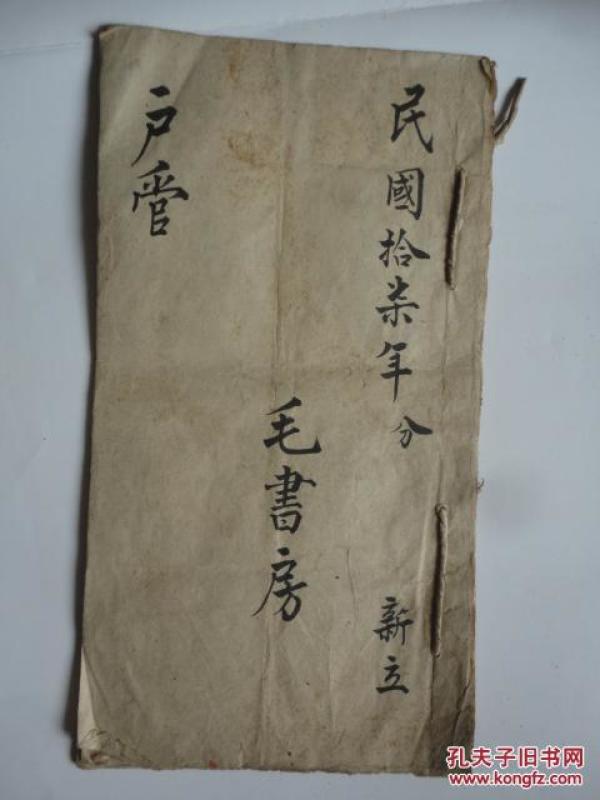 民國拾柒年分
新立
毛書房
户管
孔夫子旧书网
www.kongfz.com